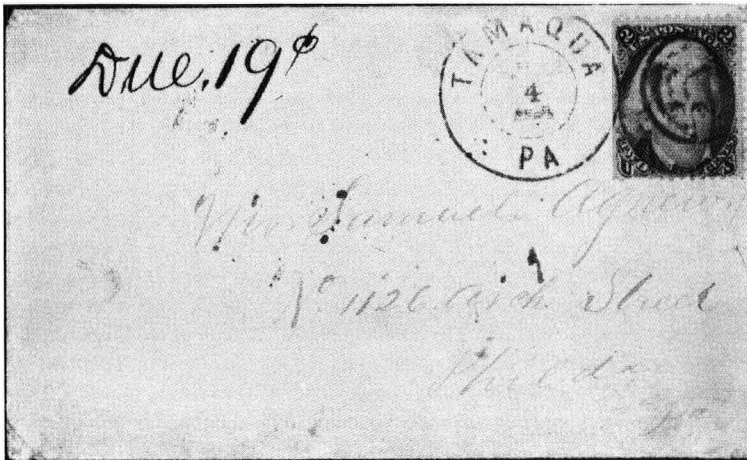 Due. 19¢
TAMAQUA
4
PA
2 2
U S
Mr. Samuel Agnew
No. 1126 Arch Street
Philada
Pa